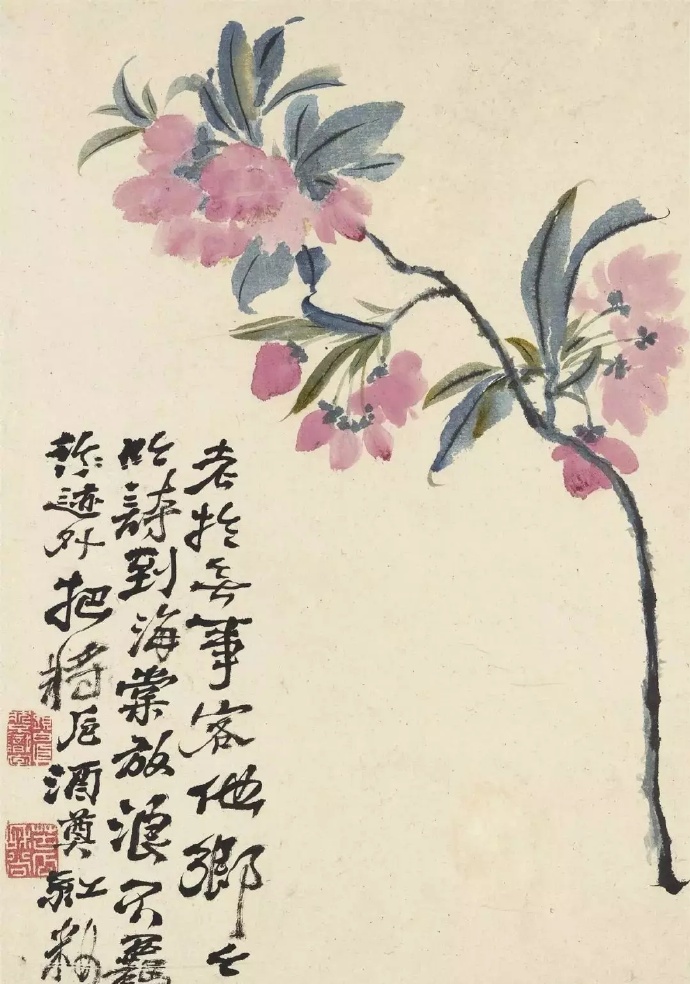 老於無事客他鄉
吟詩到海棠放浪不羈
迹外把將卮酒奠紅粧